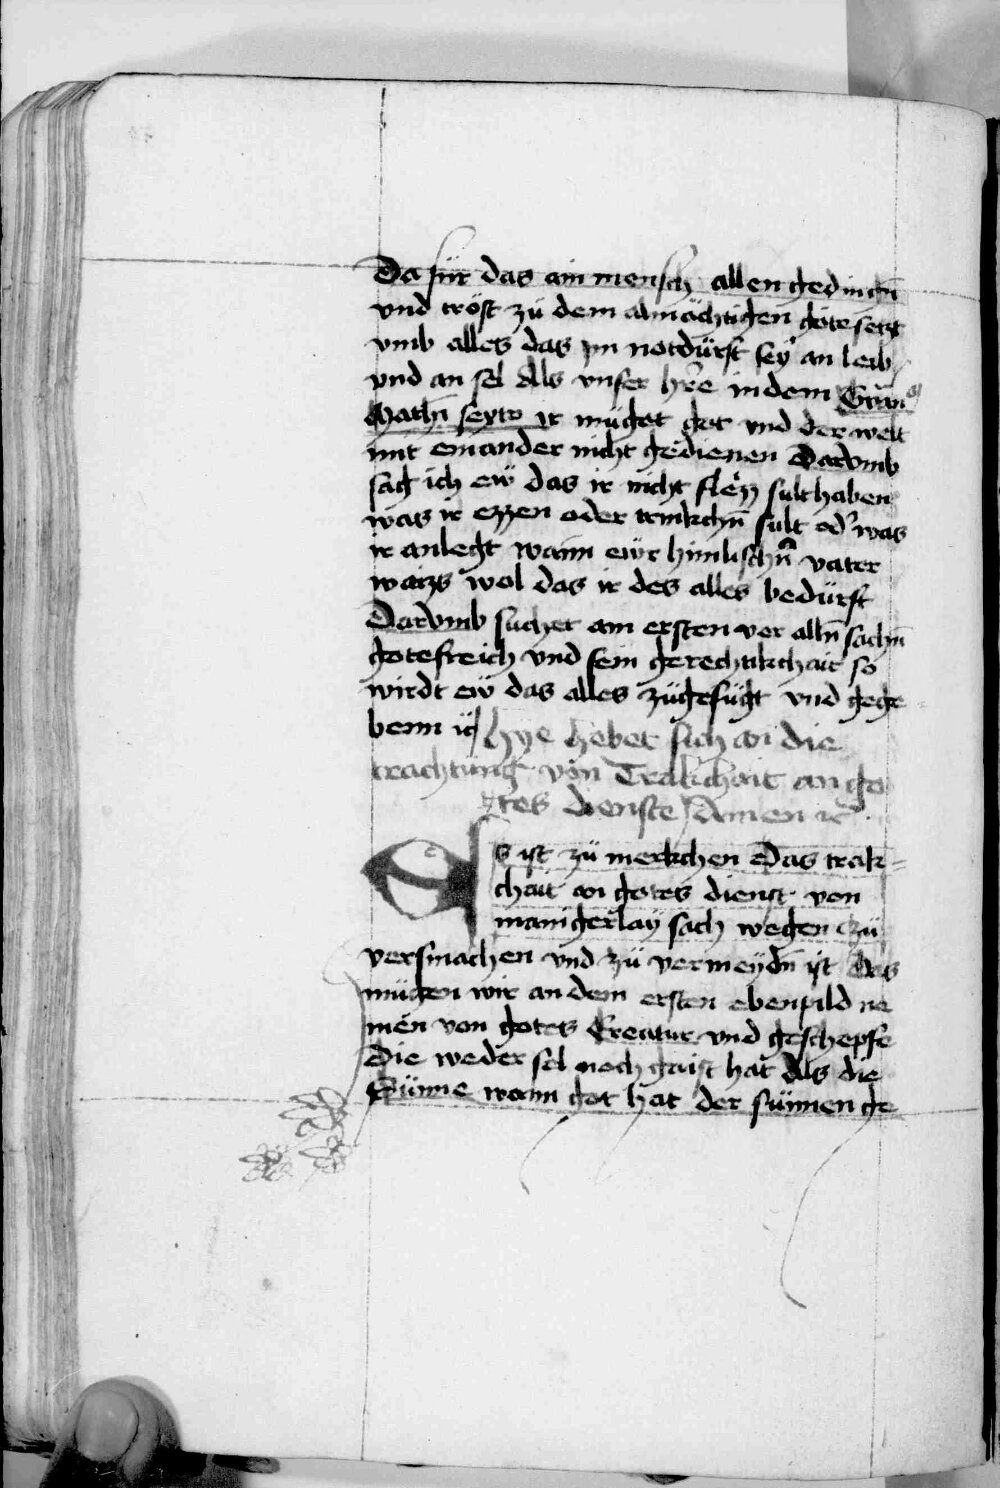 Da für das ain mensch allen gedingn̄
vnd tröst zů dem almächtigen gote setzt
vmb alles das ym notdürft sey an leib
vnd an sel Als vnser hr̄e in dem Ewan
Mathei sexto ir müget got vnd der welt
mit einander nicht gedienen Darvmb
sag ich eẅ das ir nicht fleyzz sult haben
was ir ezzen oder trinkchn̄ sult od' was
ir anlegt wann ewr himlischn̄ vater
waizs wol das ir des alles bedürft
Darvmb suchet am ersten vor alln̄ sachn̄
gotes reich vnd sein gerechtikchait so
wirdt eẅ das alles zůgefügt vnd gege
benn ꝛc̄ hye hebet sich an die
trachtung von Trakchait an go
tes dienste Amen ꝛc̄
Es ist zů merkchen Das trak
chait an gotes dienst von
manigerlay sach wegen zů
versmachen vnd zů vermeydn̄ ist Das
mügen wir an dem ersten ebenpild ne
men von gotes Creatur vnd geschepfe
Die weder sel noch gaist hat Als die
Sünne wann got hat der sünnen ge